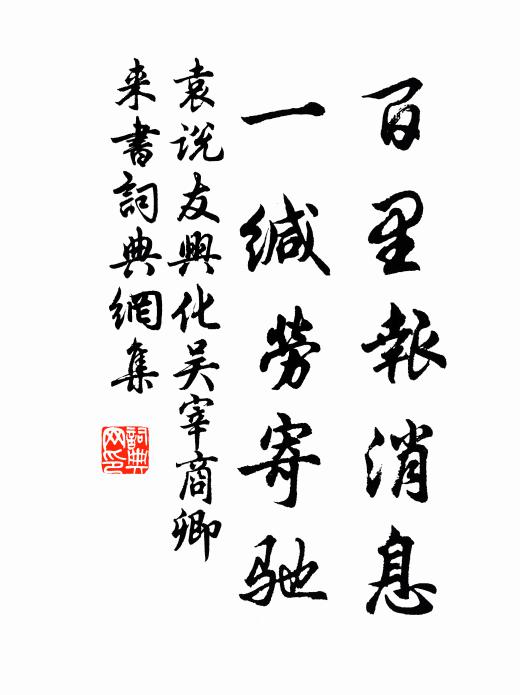 百里報消息
一缄勞寄馳
袁说友興化吴宰商卿
来書詞典網集
詞典网印